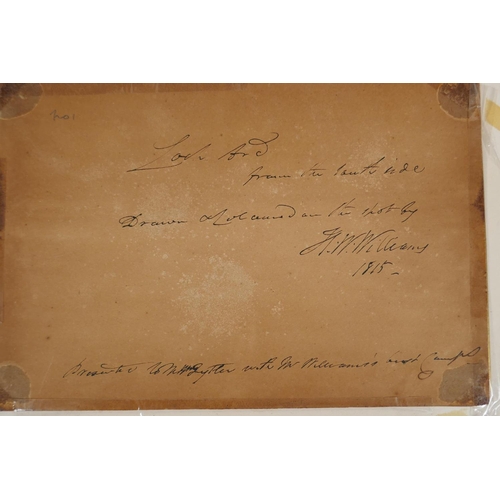 No 1
Loch Ard
from the South side
Drawn & Coloured on the spot by
H. W. Williams
1815
Presented to Mr Tytler with Mr Williams's best Compts